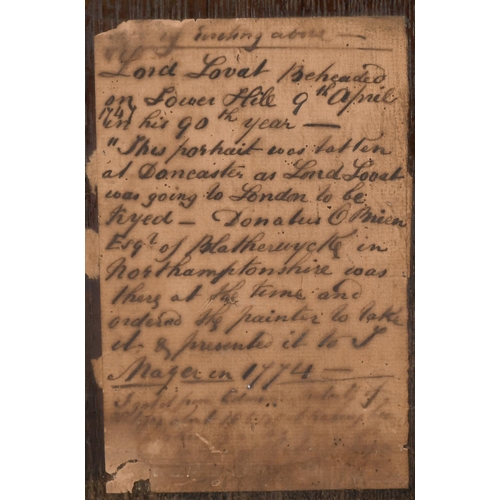 of meeting above —
Lord Lovat Beheaded
on Tower Hill 9th April
1747
in his 90th year —
"This portrait was tatten
at Doncaster as Lord Lovat
was going to London to be
tryed — Donatus O'Brien
Esqr. of Blatherwycke in
Northamptonshire was
there at the time and
ordered the painter to take
it & presented it to J
Mayer in 1774 —